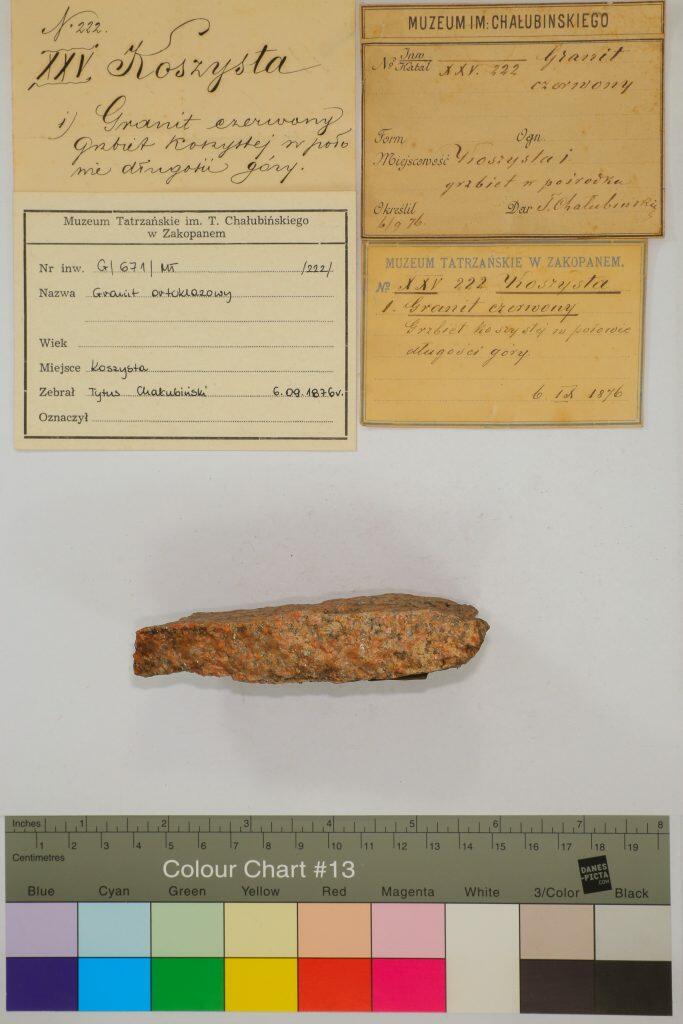 N. 222.
XXV. Koszysta
1) Granit czerwony
grzbiet Koszystej w poło
wie długości góry.
MUZEUM IM: CHAŁUBINSKIEGO
№ Inw / Katal XXV. 222 Granit
czerwony
Form Ogn.
Miejscowość Koszysta i
grzbiet w pośrodku
Określił Dar T. Chałubiński
6/9 76.
Muzeum Tatrzańskie im. T. Chałubińskiego
w Zakopanem
Nr inw. G/671/MT /222/
Nazwa Granit ortoklazowy
Wiek
Miejsce Koszysta
Zebrał Tytus Chałubiński 6.09.1876r.
Oznaczył
MUZEUM TATRZAŃSKIE W ZAKOPANEM.
№ XXV 222 Koszysta
1. Granit czerwony
Grzbiet Koszystej w połowie
długości góry.
6 IX 1876
Inches 1 2 3 4 5 6 7 8
1 2 3 4 5 6 7 8 9 10 11 12 13 14 15 16 17 18 19
Centimetres
Colour Chart #13
DANES
-PICTA
.COM
Blue Cyan Green Yellow Red Magenta White 3/Color Black